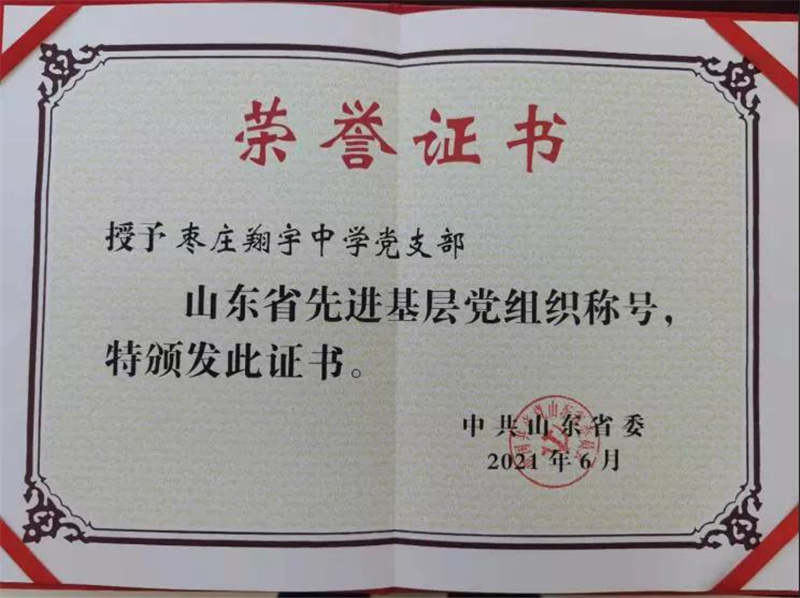 荣誉证书
授予枣庄翔宇中学党支部
山东省先进基层党组织称号，
特颁发此证书。
中共山东省委
2021年6月